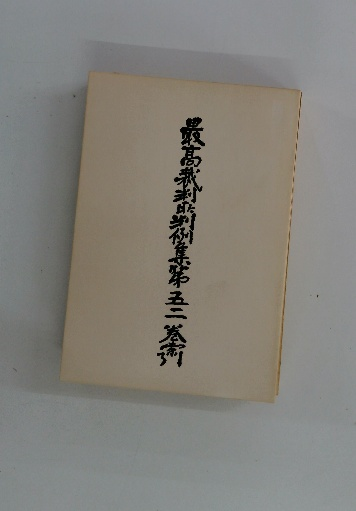 最高裁判所判例集第五二巻索引